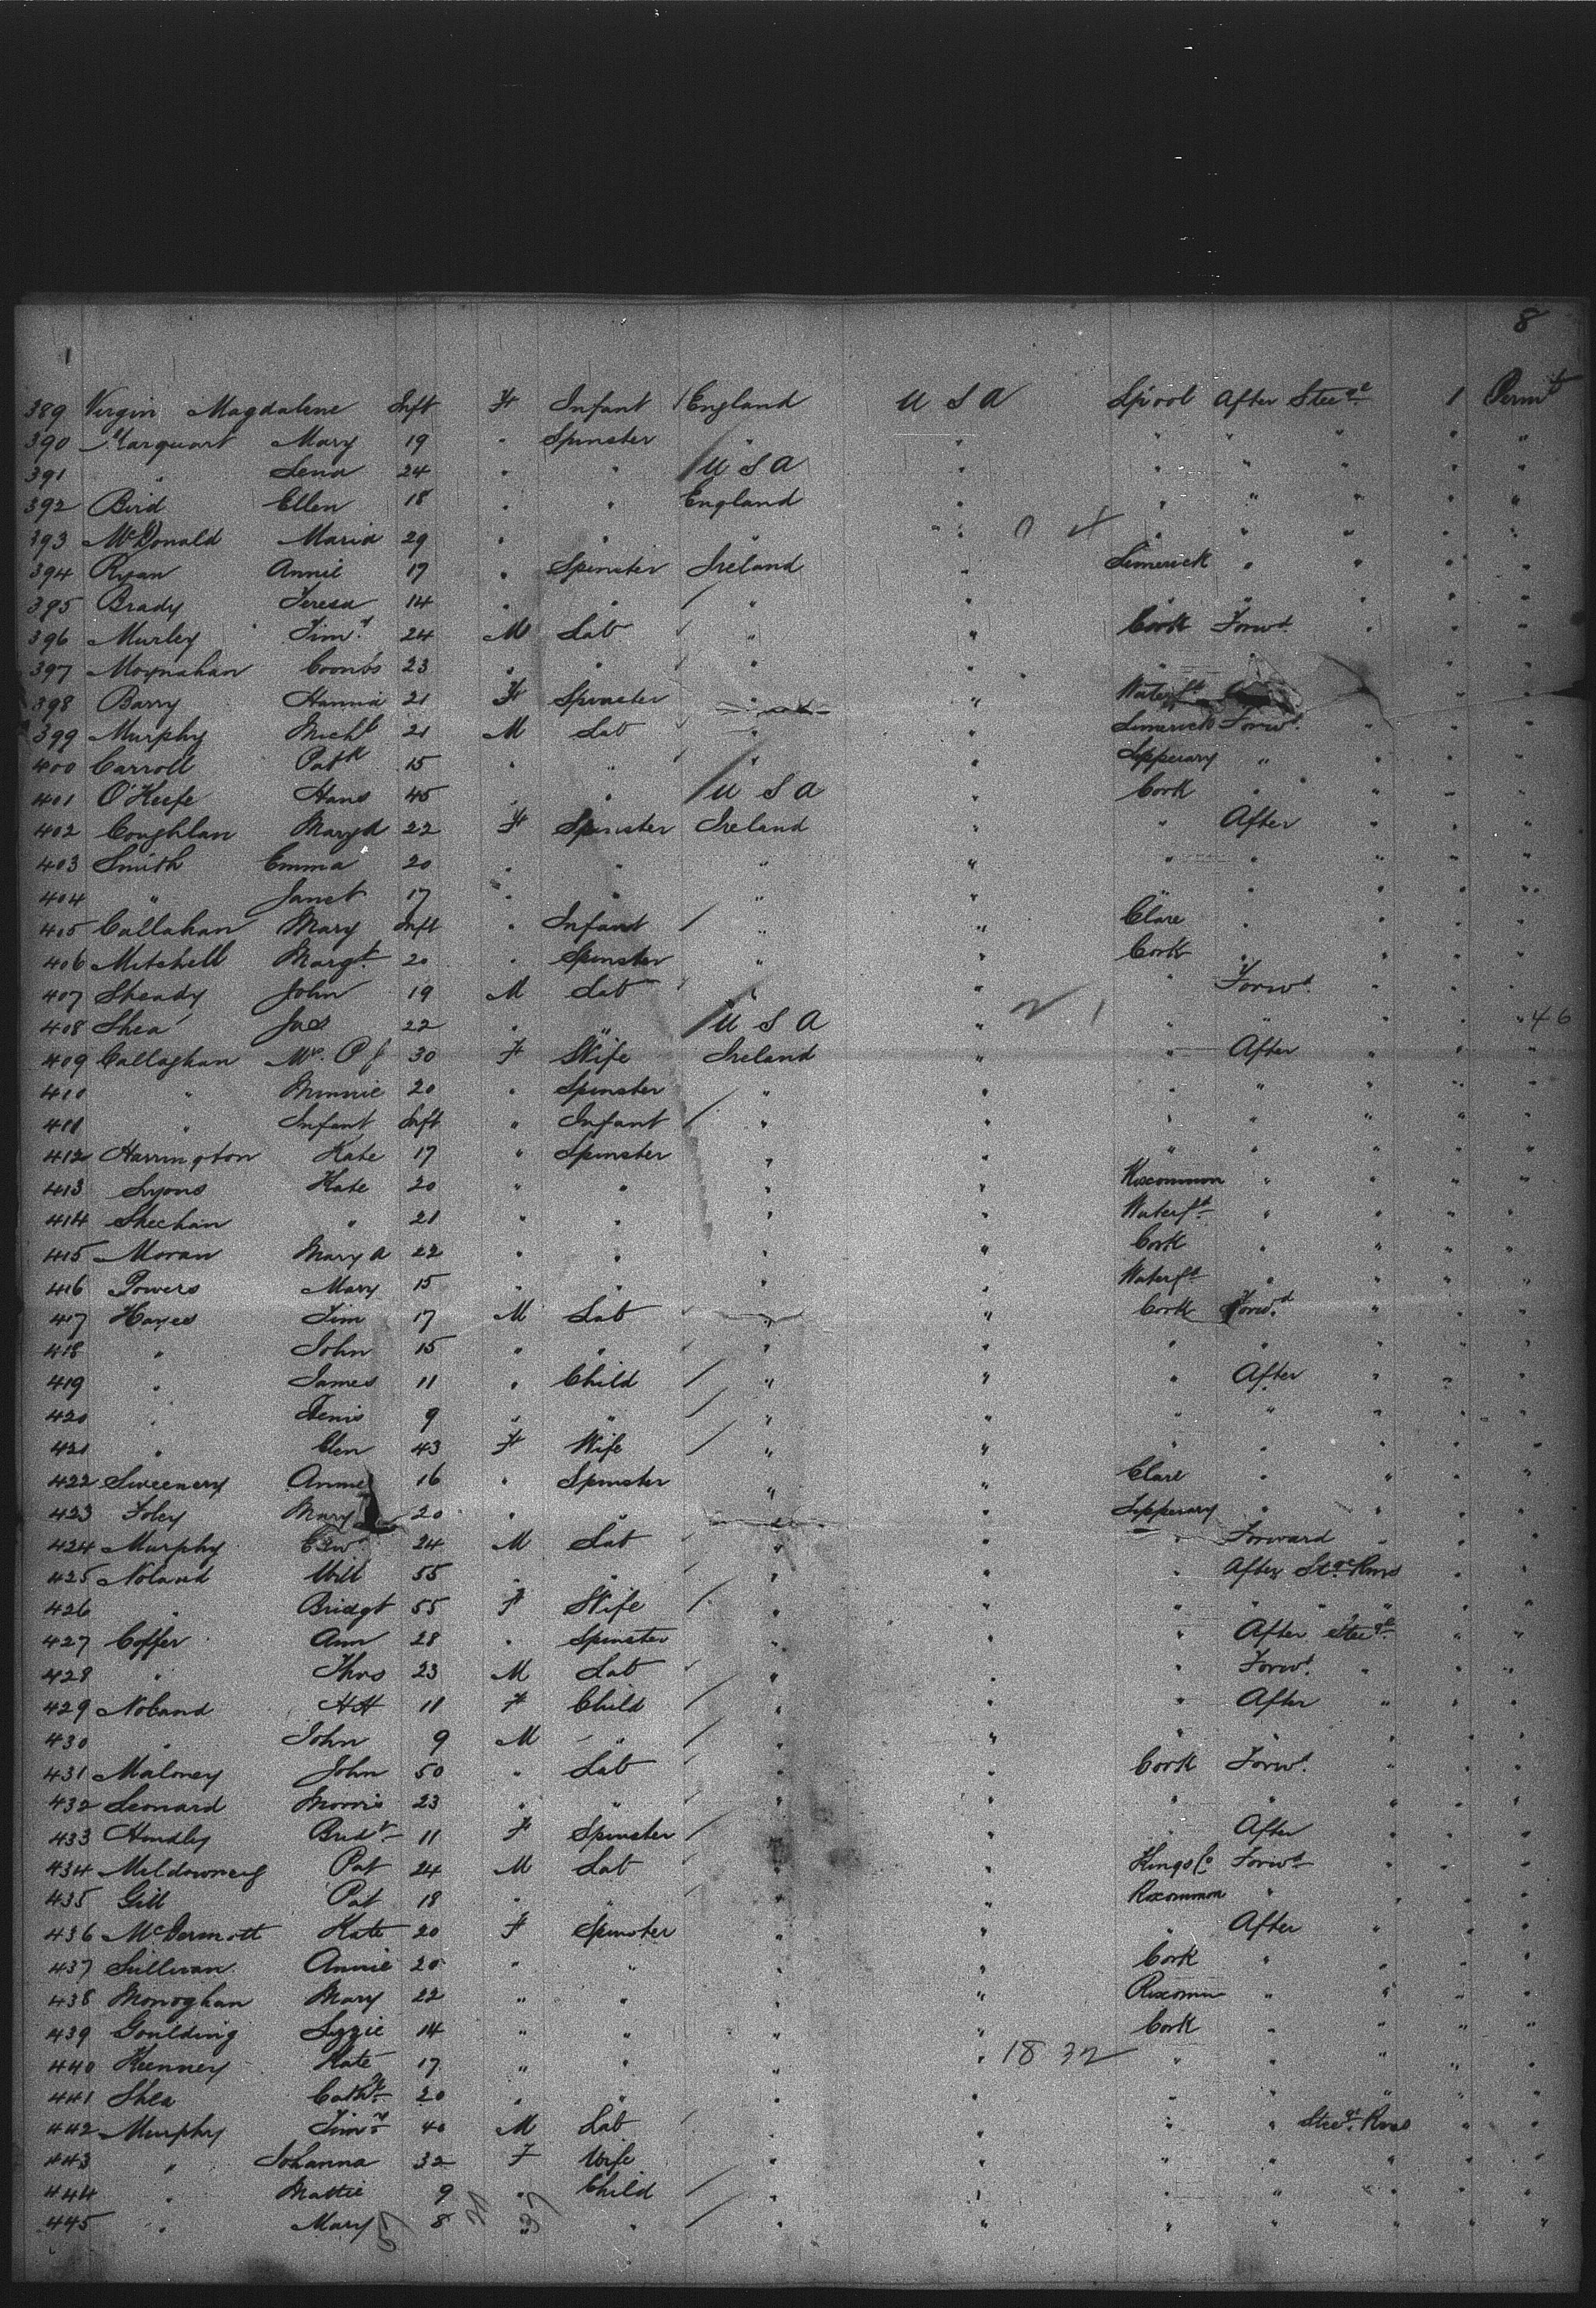 8
1
389 Virgin Magdalene Inft F Infant / England U S A Lpool After Steege 1 Permt
390 Marquart Mary 19 " Spinster " " " " " " "
391 " Lena 24 " " / U S A " " " " " "
392 Bird Ellen 18 " " England " " " " " "
393 McDonald Maria 29 " " " " " " " " "
394 Ryan Annie 17 " Spinster Ireland " Limerick " " " "
395 Brady Teresa 14 " " / " " " " " " "
396 Murley Timy 24 M Lab " " Cork Forwd " " "
397 Moynahan Coombs 23 " " " " " " " "
398 Barry Hanna 21 F Spinster " " Waterfd " "
399 Murphy Michl 21 M Lab " " Limerick Forwd " " "
400 Carroll Patk 15 " " " " Tipperary " " " "
401 O'Keefe Hans 45 " " / U S A " Cork " " " "
402 Coughlan Mary A 22 F Spinster Ireland " " After " " "
403 Smith Emma 20 " " " " " " " " "
404 " Janet 17 " " " " " " " " "
405 Callahan Mary Inft " Infant / " " Clare " " " "
406 Mitchell Margt 20 " Spinster " " Cork " " " "
407 Sheady John 19 M Lab " " " Forwd " " "
408 Shea Jas 22 " " / U S A " " " " " " 46
409 Callaghan Mrs P J 30 F Wife Ireland " " After " " "
410 " Minnie 20 " Spinster " " " " " " "
411 " Infant Inft " Infant / " " " " " " "
412 Harrington Kate 17 " Spinster " " " " " " "
413 Lyons Kate 20 " " " " Roscommon " " " "
414 Sheehan " 21 " " " " Waterfd " " " "
415 Moran Mary A 22 " " " " Cork " " " "
416 Powers Mary 15 " " " " Waterfd " " " "
417 Hayes Tim 17 M Lab " " Cork Forwd " " "
418 " John 15 " " " " " " " " "
419 " James 11 " Child / " " " After " " "
420 " Denis 9 " " / " " " " " " "
421 " Elen 43 F Wife / " " " " " " "
422 Sweeney Annie 16 " Spinster " " Clare " " " "
423 Foley Mary 20 " " " " Tipperary " " " "
424 Murphy Edwd 24 M Lab " " " Forward " " "
425 Noland Will 55 " " " " " After Stge Rms " "
426 " Bridgt 55 F Wife " " " " " " " "
427 Coffer Ann 28 " Spinster " " " After Steege " "
428 " Thos 23 M Lab " " " Forwd " " "
429 Noland H H 11 F Child / " " " After " " "
430 " John 9 M " / " " " " " " "
431 Maloney John 50 " Lab " " Cork Forwd " " "
432 Leonard Morris 23 " " " " " " " " "
433 Hindley Bridt 11 F Spinster / " " " After " " "
434 Muldowney Pat 24 M Lab " " Kings Co Forwd " " "
435 Gill Pat 18 " " " " Roscommon " " " "
436 McDermott Kate 20 F Spinster " " " After " " "
437 Sullivan Annie 20 " " " " Cork " " " "
438 Monoghan Mary 22 " " " " Roscomn " " " "
439 Goulding Lizzie 14 " " " " Cork " " " "
440 Keenney Kate 17 " " " " 18 32 " " " " "
441 Shea Cathe 20 " " " " " " " " "
442 Murphy Timy 40 M Lab " " " " Steege Rms " "
443 " Johanna 32 F Wife " " " " " " "
444 " Mattie 9 " Child / " " " " " " "
445 " Mary 8 " " / " " " " " " "